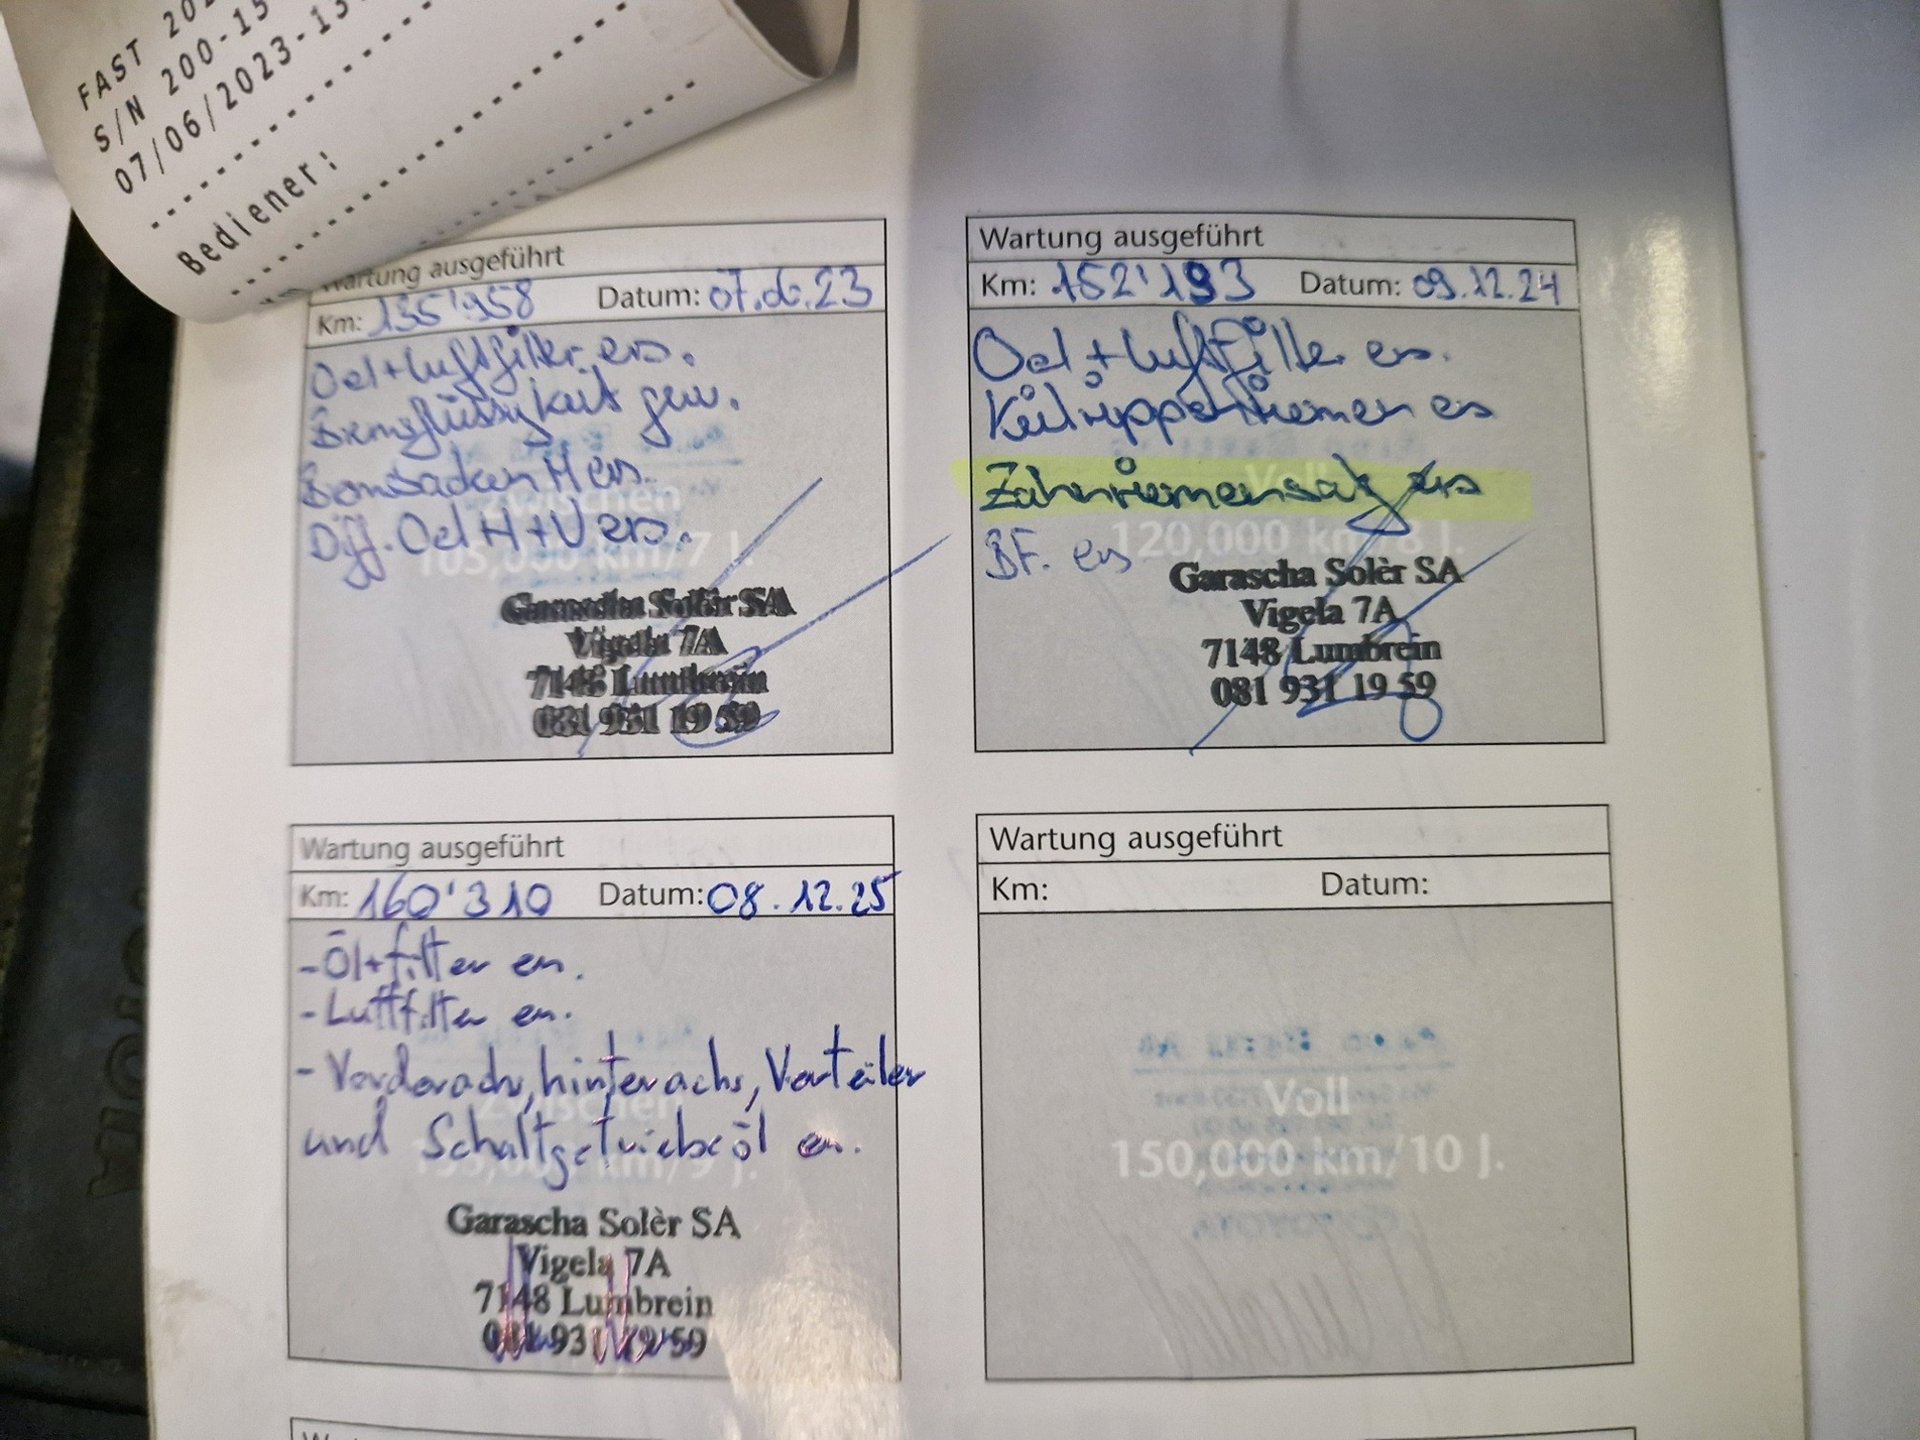 FAST
S/N 200-15
07/06/2023-13
Bediener:
Wartung ausgeführt
Km: 135'958 Datum: 07.06.23
Oel+Luftfilter ers.
Bremsflüssigkeit gew.
Bremsbacken H ers.
Diff. Oel H+V ers.
zwischen
105,000 km/7 J.
Garascha Solèr SA
Vigela 7A
7148 Lumbrein
081 931 19 59
Wartung ausgeführt
Km: 152'193 Datum: 09.12.24
Oel + Luftfilter ers.
Keilrippenriemen ers
Zahnriemensatz ers
BF. ers
Voll
120,000 km/8 J.
Garascha Solèr SA
Vigela 7A
7148 Lumbrein
081 931 19 59
Wartung ausgeführt
Km: 160'310 Datum: 08.12.25
- Öl+filter er.
- Luftfilter er.
- Vorderachs, hinterachs, Verteiler
und Schaltgetriebeöl er.
Zwischen
135,000 km/9 J.
Garascha Solèr SA
Vigela 7A
7148 Lumbrein
081 931 19 59
Wartung ausgeführt
Km: Datum:
Voll
150,000 km/10 J.